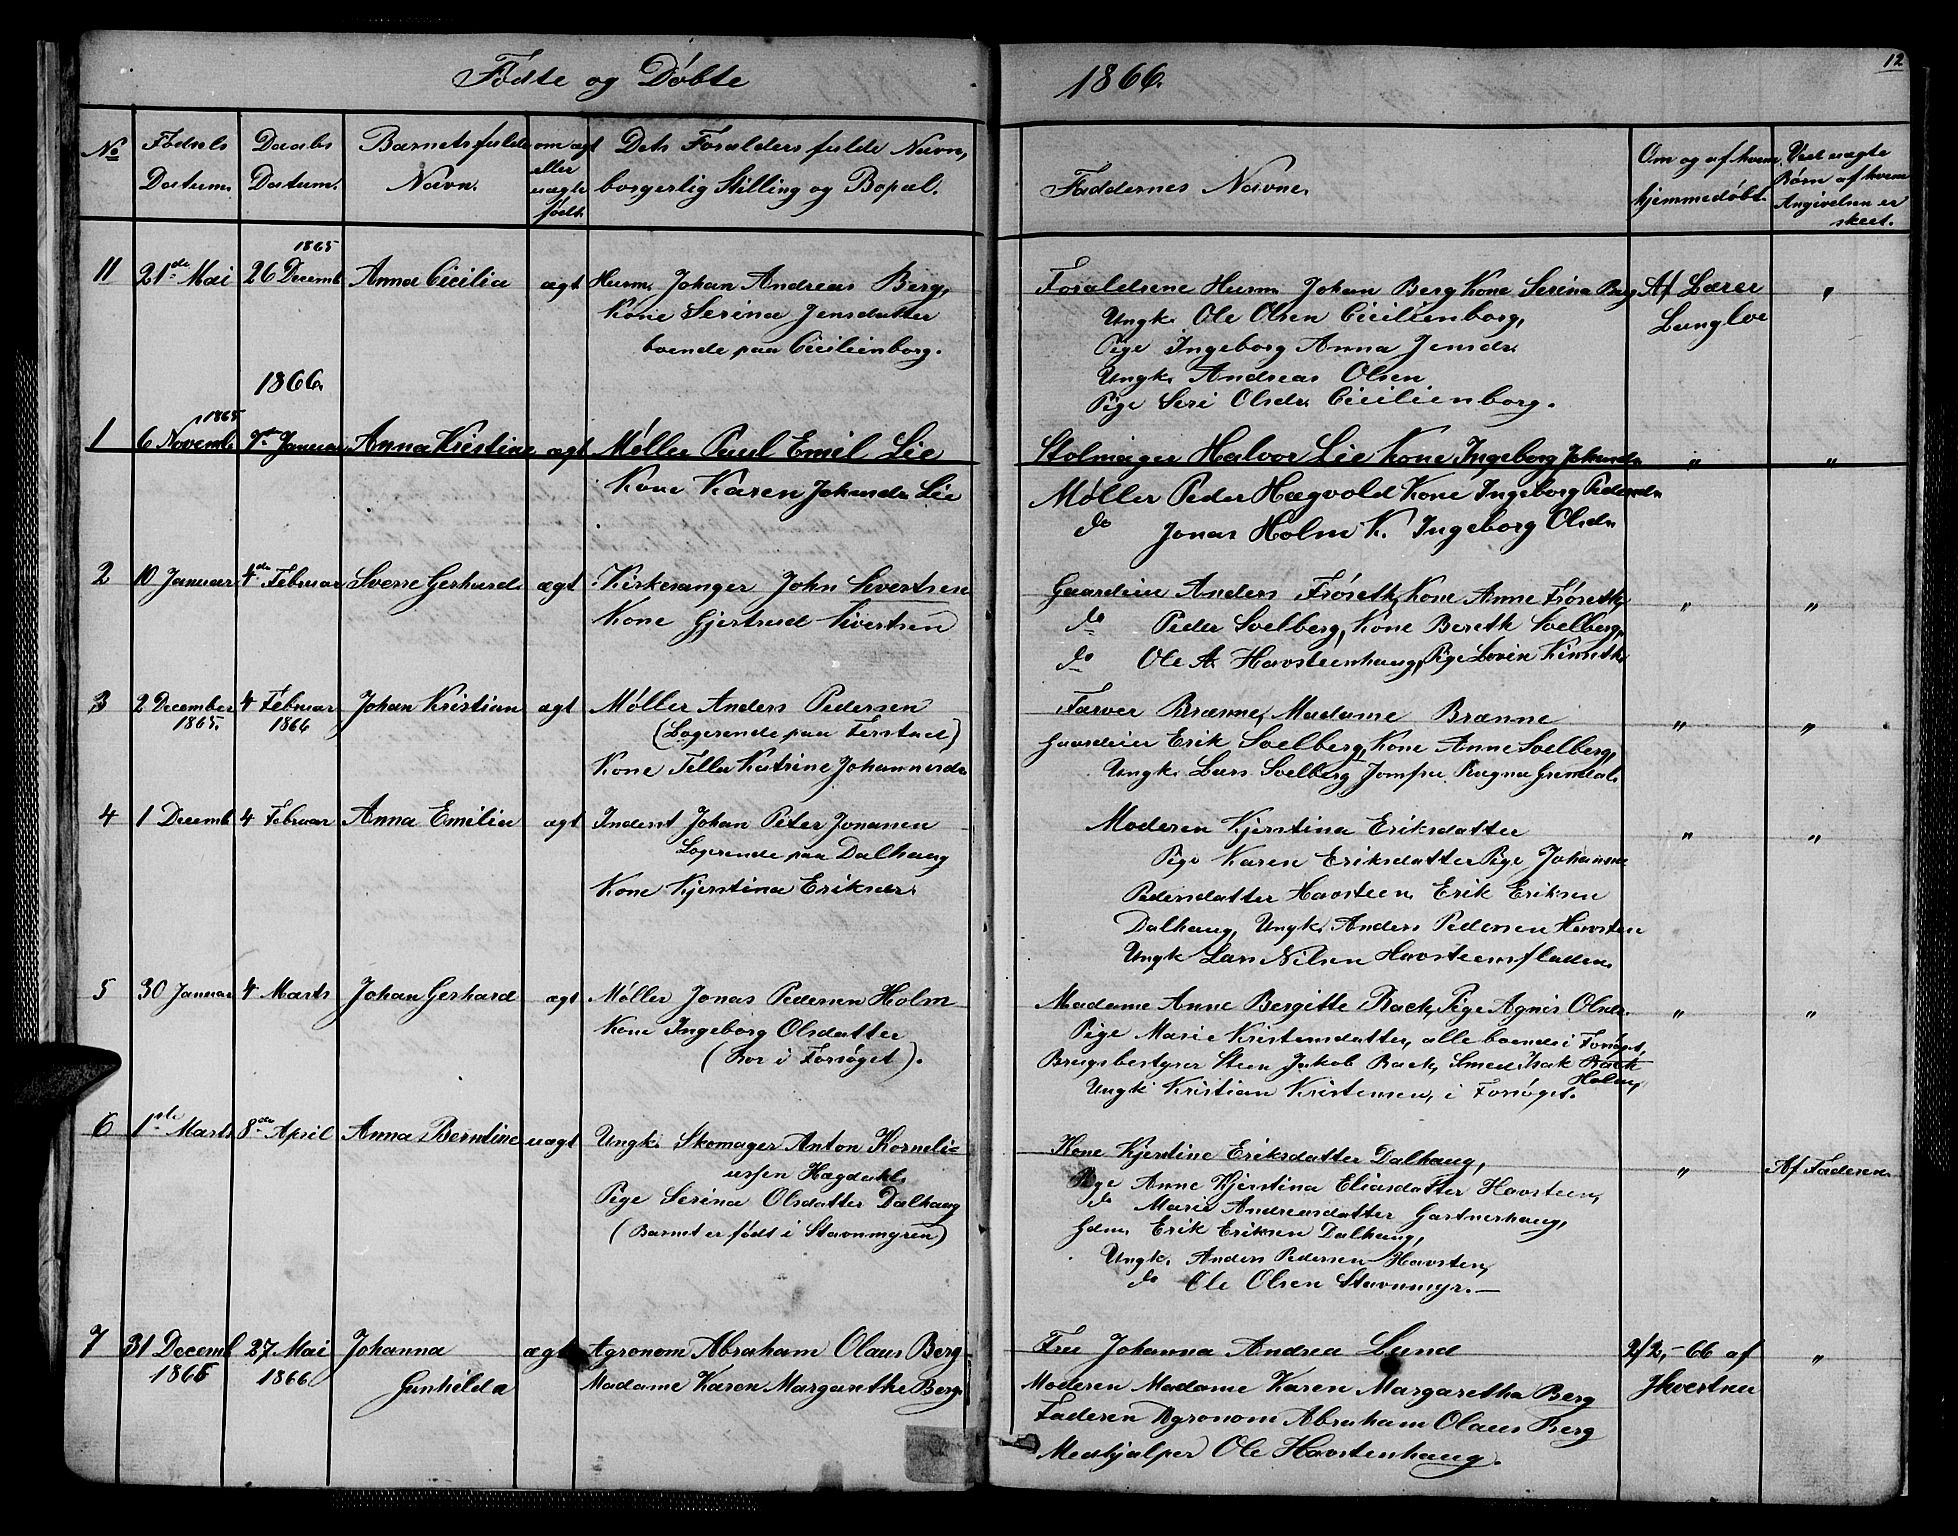 12
Fødte og Døbte
1866.
No
Fødsels
Datum.
Daabs
Datum.
Barnets fulde
Navn.
om ægt
eller
uægte
født.
Dets Forældres fulde Navn,
borgerlig Stilling og Bopæl.
Faddernes Navne.
Om og af hvem
hjemmedøbt.
Ved uægte
Børn af hvem
Angivelsen er
skeet.
11
21de Mai
1865
26 Decemb
Anna Cicilia
ægt
Husm. Johan Andreas Berg,
Kone Serina Jensdatter
boende paa Cicilienborg.
Forældrene Husm Johan Berg Kone Serina Berg
Ungk. Ole Olsen Cicilienborg,
Pige Ingeborg Anna Jensdr.
Ungk. Andreas Olsen
Pige Seri Olsdr. Cicilienborg.
Af Lærer
Langlve
"
1866.
1
1865
6 Novemb
1st Januar
Anna Kristine
ægt
Møller Paul Emil Lie
Kone Karen Johnsdr Lie
Stolmager Halvor Lie Kone Ingeborg Johnsdr
Møller Peder Hægvold Kone Ingeborg Pedersdr
do Jonas Holm K. Ingeborg Olsdr
"
"
2
10 Januar
4de Februar
Sverre Gerhard
ægt
Kirkesanger John Sivertsen
Kone Gjertrud Sivertsen
Gaardeier Anders Frøseth, Kone Anne Frøseth,
do Peder Solberg, Kone Bereth Solberg,
do Ole A. Havsteenhaug, Pige Lovin
"
"
3
2 December
1865.
4 Februar
1866
Johan Kristian
ægt
Møller Anders Pedersen
(Logerende paa Ferstad)
Kone Tella Katrine Johannesdr
Farver Brænne, Madame Brænne
Gaardeier Erik Solberg, Kone Anne Solberg,
Ungk. Lars Solberg Jomfru Ragna Grendal.
"
"
4
1 Decemb
4 Februar
Anna Emilia
ægt
Inderst Johan Peter Jonasen
Logerende paa Dalhaug
Kone Kjerstina Eriksdr.
Moderen Kjerstina Eriksdatter
Pige Karen Eriksdatter Pige Johanne
Pedersdatter Havsteen, Erik Eriksen
Dalhaug, Ungk. Anders Pedersen Havsten
Ungk Lars Nilsen Havsteensfladen.
"
"
5
30 Januar
4 Marts
Johan Gerhard
ægt
Møller Jonas Pedersen Holm
Kone Ingeborg Olsdatter
(Bor i Forsøget).
Madame Anne Bergitte Rack, Pige Agnis Olsdr.
Pige Marie Kristensdatter, alle boende i Forsøget,
Brugsbestyrer Steen Jakob Rack, Smed Isak Rack
Holm,
Ungk Kristian Kristensen, i Forsøget.
"
"
6
1ste Marts
8de April
Anna Berntine
uægt
Ungk. Skomager Anton Korneli-
ussen Hagdahl
Pige Serina Olsdatter Dalhaug
(Barnet er født i Stavnmyren)
Kone Kjerstine Eriksdatter Dalhaug,
Pige Anne Kjerstina Eliasdatter Havsteen,
do Marie Andreasdatter Gartnerhaug,
Gdm. Erik Eriksen Dalhaug,
Ungk. Anders Pedersen Havsten,
do Ole Olsen Stavnmyr. —
"
Af Faderen
7
31 Decemb
1865
27. Mai
1866.
Johanna
Gunhilda
ægt
Agronom Abraham Olaus Berg
Madame Karen Margarethe Berg.
Fru Johanna Andrea Lund
Moderen Madame Karen Margaretha Berg
Faderen Agronom Abraham Olaus Berg
Medhjælper Ole Havstenhaug.
2/2, - 66 af
"